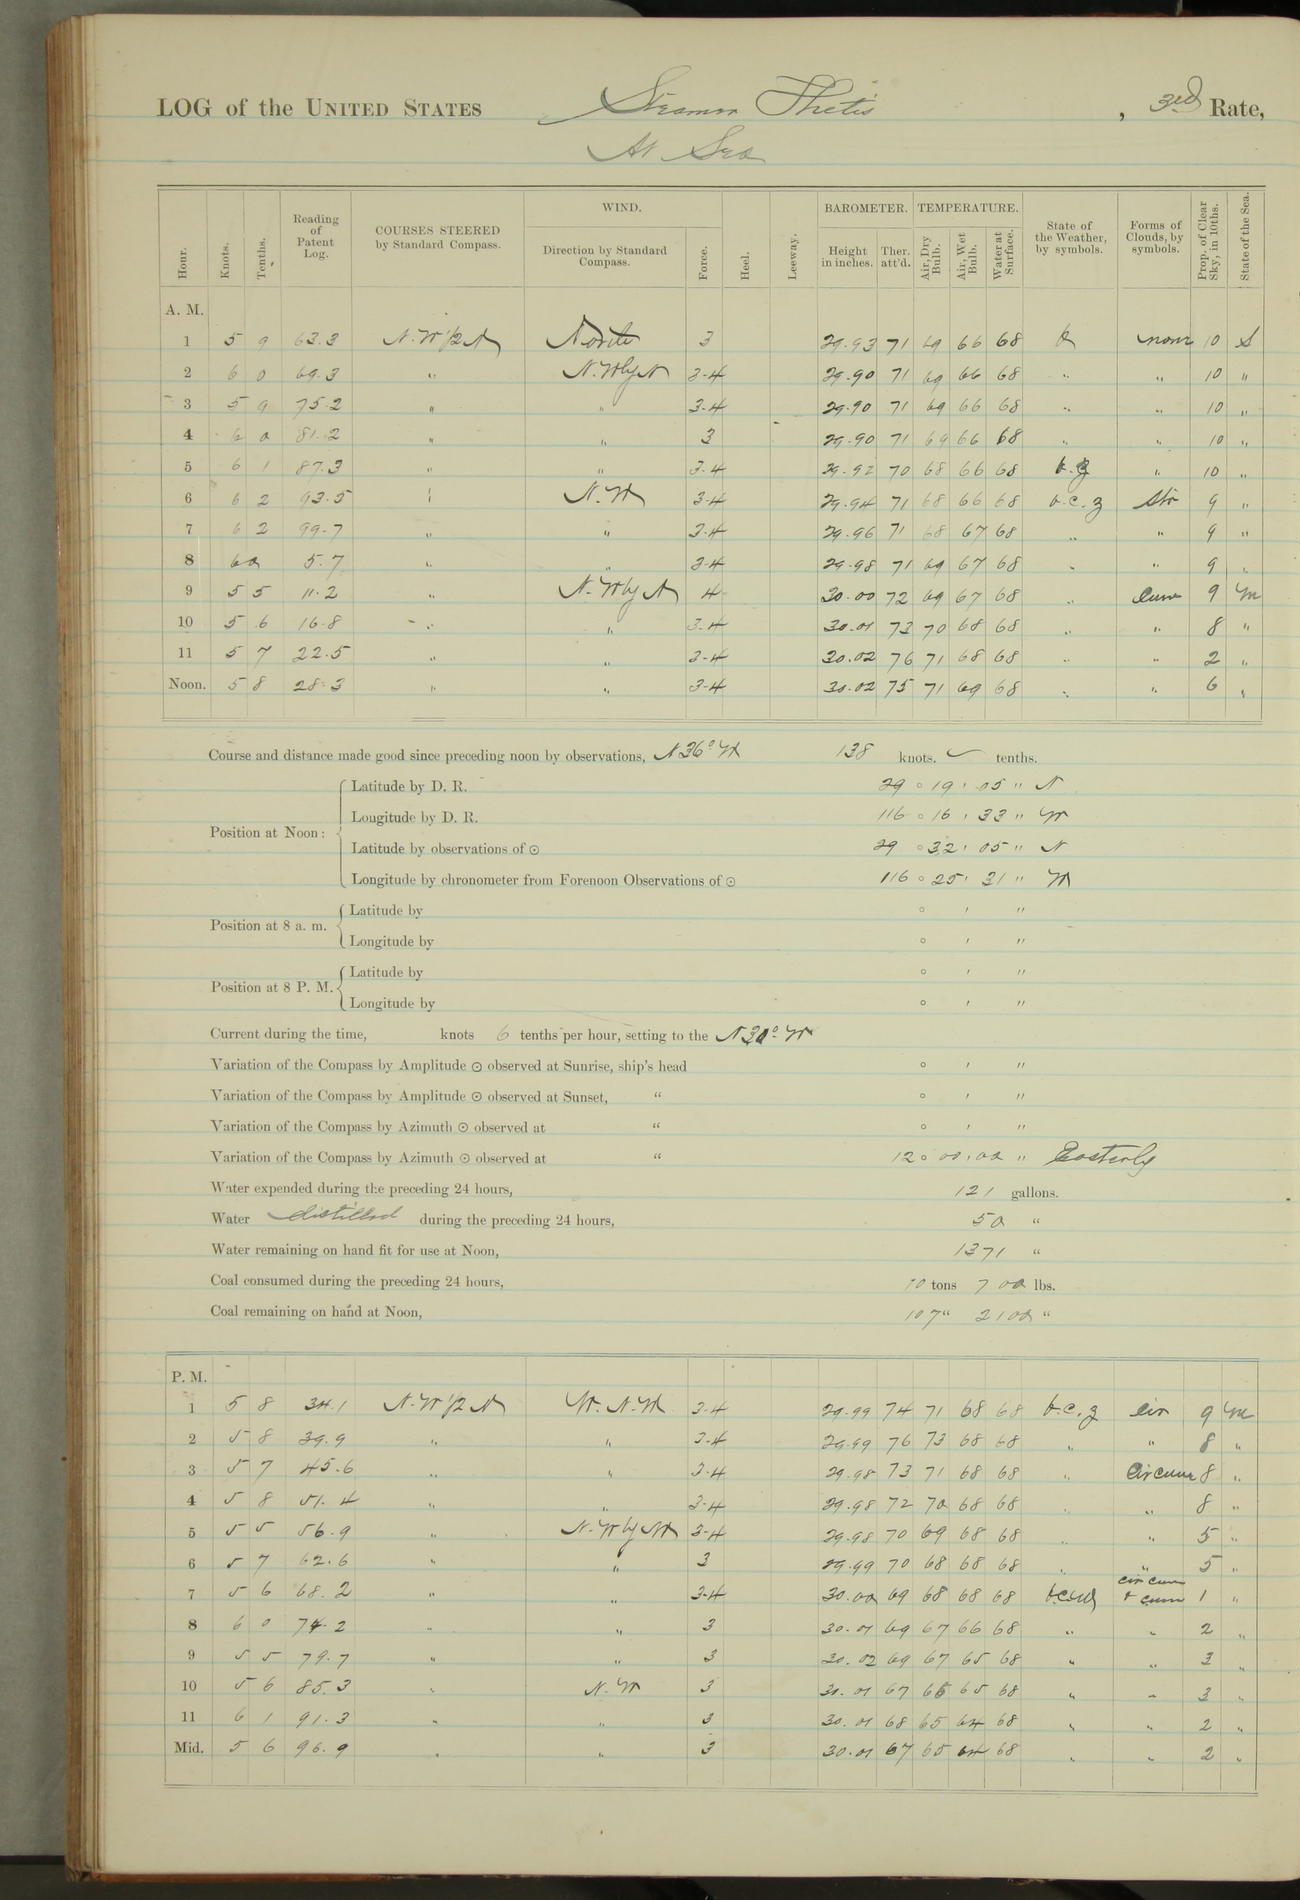 LOG of the UNITED STATES Steamer Thetis, 3rd Rate,
At Sea
Hour. Knots. Tenths. Reading of Patent Log. COURSES STEERED by Standard Compass. WIND. Direction by Standard Compass. Force. Heel. Leeway. BAROMETER. Height in inches. Ther. att'd. TEMPERATURE. Air, Dry Bulb. Air, Wet Bulb. Water at Surface. State of the Weather, by symbols. Forms of Clouds, by symbols. Prop. of Clear Sky, in 10ths. State of the Sea.
A. M.
1 5 9 63.3 N.W 1/2 N North 3 29.93 71 69 66 68 b none 10 S
2 6 0 69.3 " N.W by N 3-4 29.90 71 69 66 68 " " 10 "
3 5 9 75.2 " " 3-4 29.90 71 69 66 68 " " 10 "
4 6 0 81.2 " " 3 29.90 71 69 66 68 " " 10 "
5 6 1 87.3 " " 3-4 29.92 70 68 66 68 b.z " 10 "
6 6 2 93.5 " N.W 3-4 29.94 71 68 66 68 b.c.z Str 9 "
7 6 2 99.7 " " 3-4 29.96 71 68 67 68 " " 9 "
8 6 0 5.7 " " 3-4 29.98 71 69 67 68 " " 9 "
9 5 5 11.2 " N.W by N 4 30.00 72 69 67 68 " cum 9 M
10 5 6 16.8 " " 3-4 30.01 73 70 68 68 " " 8 "
11 5 7 22.5 " " 3-4 30.02 76 71 68 68 " " 2 "
Noon. 5 8 28.3 " " 3-4 30.02 75 71 69 68 " " 6 "
Course and distance made good since preceding noon by observations, N 36° W 138 knots. tenths.
Position at Noon:
Latitude by D. R. 29 ° 19 ' 05 " N
Longitude by D. R. 116 ° 16 ' 33 " W
Latitude by observations of ☉ 29 ° 32 ' 05 " N
Longitude by chronometer from Forenoon Observations of ☉ 116 ° 25 ' 31 " W
Position at 8 a. m.
Latitude by ° ' "
Longitude by ° ' "
Position at 8 P. M.
Latitude by ° ' "
Longitude by ° ' "
Current during the time, knots 6 tenths per hour, setting to the N 30° W
Variation of the Compass by Amplitude ☉ observed at Sunrise, ship's head ° ' "
Variation of the Compass by Amplitude ☉ observed at Sunset, " ° ' "
Variation of the Compass by Azimuth ☉ observed at " ° ' "
Variation of the Compass by Azimuth ☉ observed at " 12 ° 00 ' 00 " Easterly
Water expended during the preceding 24 hours, 121 gallons.
Water distilled during the preceding 24 hours, 50 "
Water remaining on hand fit for use at Noon, 1371 "
Coal consumed during the preceding 24 hours, 10 tons 700 lbs.
Coal remaining on hand at Noon, 107 " 2100 "
P. M.
1 5 8 34.1 N.W 1/2 N W.N.W 3-4 29.99 74 71 68 68 b.c.z cir 9 M
2 5 8 39.9 " " 3-4 29.99 76 73 68 68 " " 8 "
3 5 7 45.6 " " 3-4 29.98 73 71 68 68 " cir cum 8 "
4 5 8 51.4 " " 3-4 29.98 72 70 68 68 " " 8 "
5 5 5 56.9 " N.W by W 3-4 29.98 70 69 68 68 " " 5 "
6 5 7 62.6 " " 3 29.99 70 68 68 68 " " 5 "
7 5 6 68.2 " " 3-4 30.00 69 68 68 68 cir cum & cum 1 "
8 6 0 74.2 " " 3 30.01 69 67 66 68 " " 2 "
9 5 5 79.7 " " 3 30.02 69 67 65 68 " " 3 "
10 5 6 85.3 " N.W 3 30.01 67 66 65 68 " " 3 "
11 6 1 91.3 " " 3 30.01 68 65 64 68 " " 2 "
Mid. 5 6 96.9 " " 3 30.01 67 65 64 68 " " 2 "